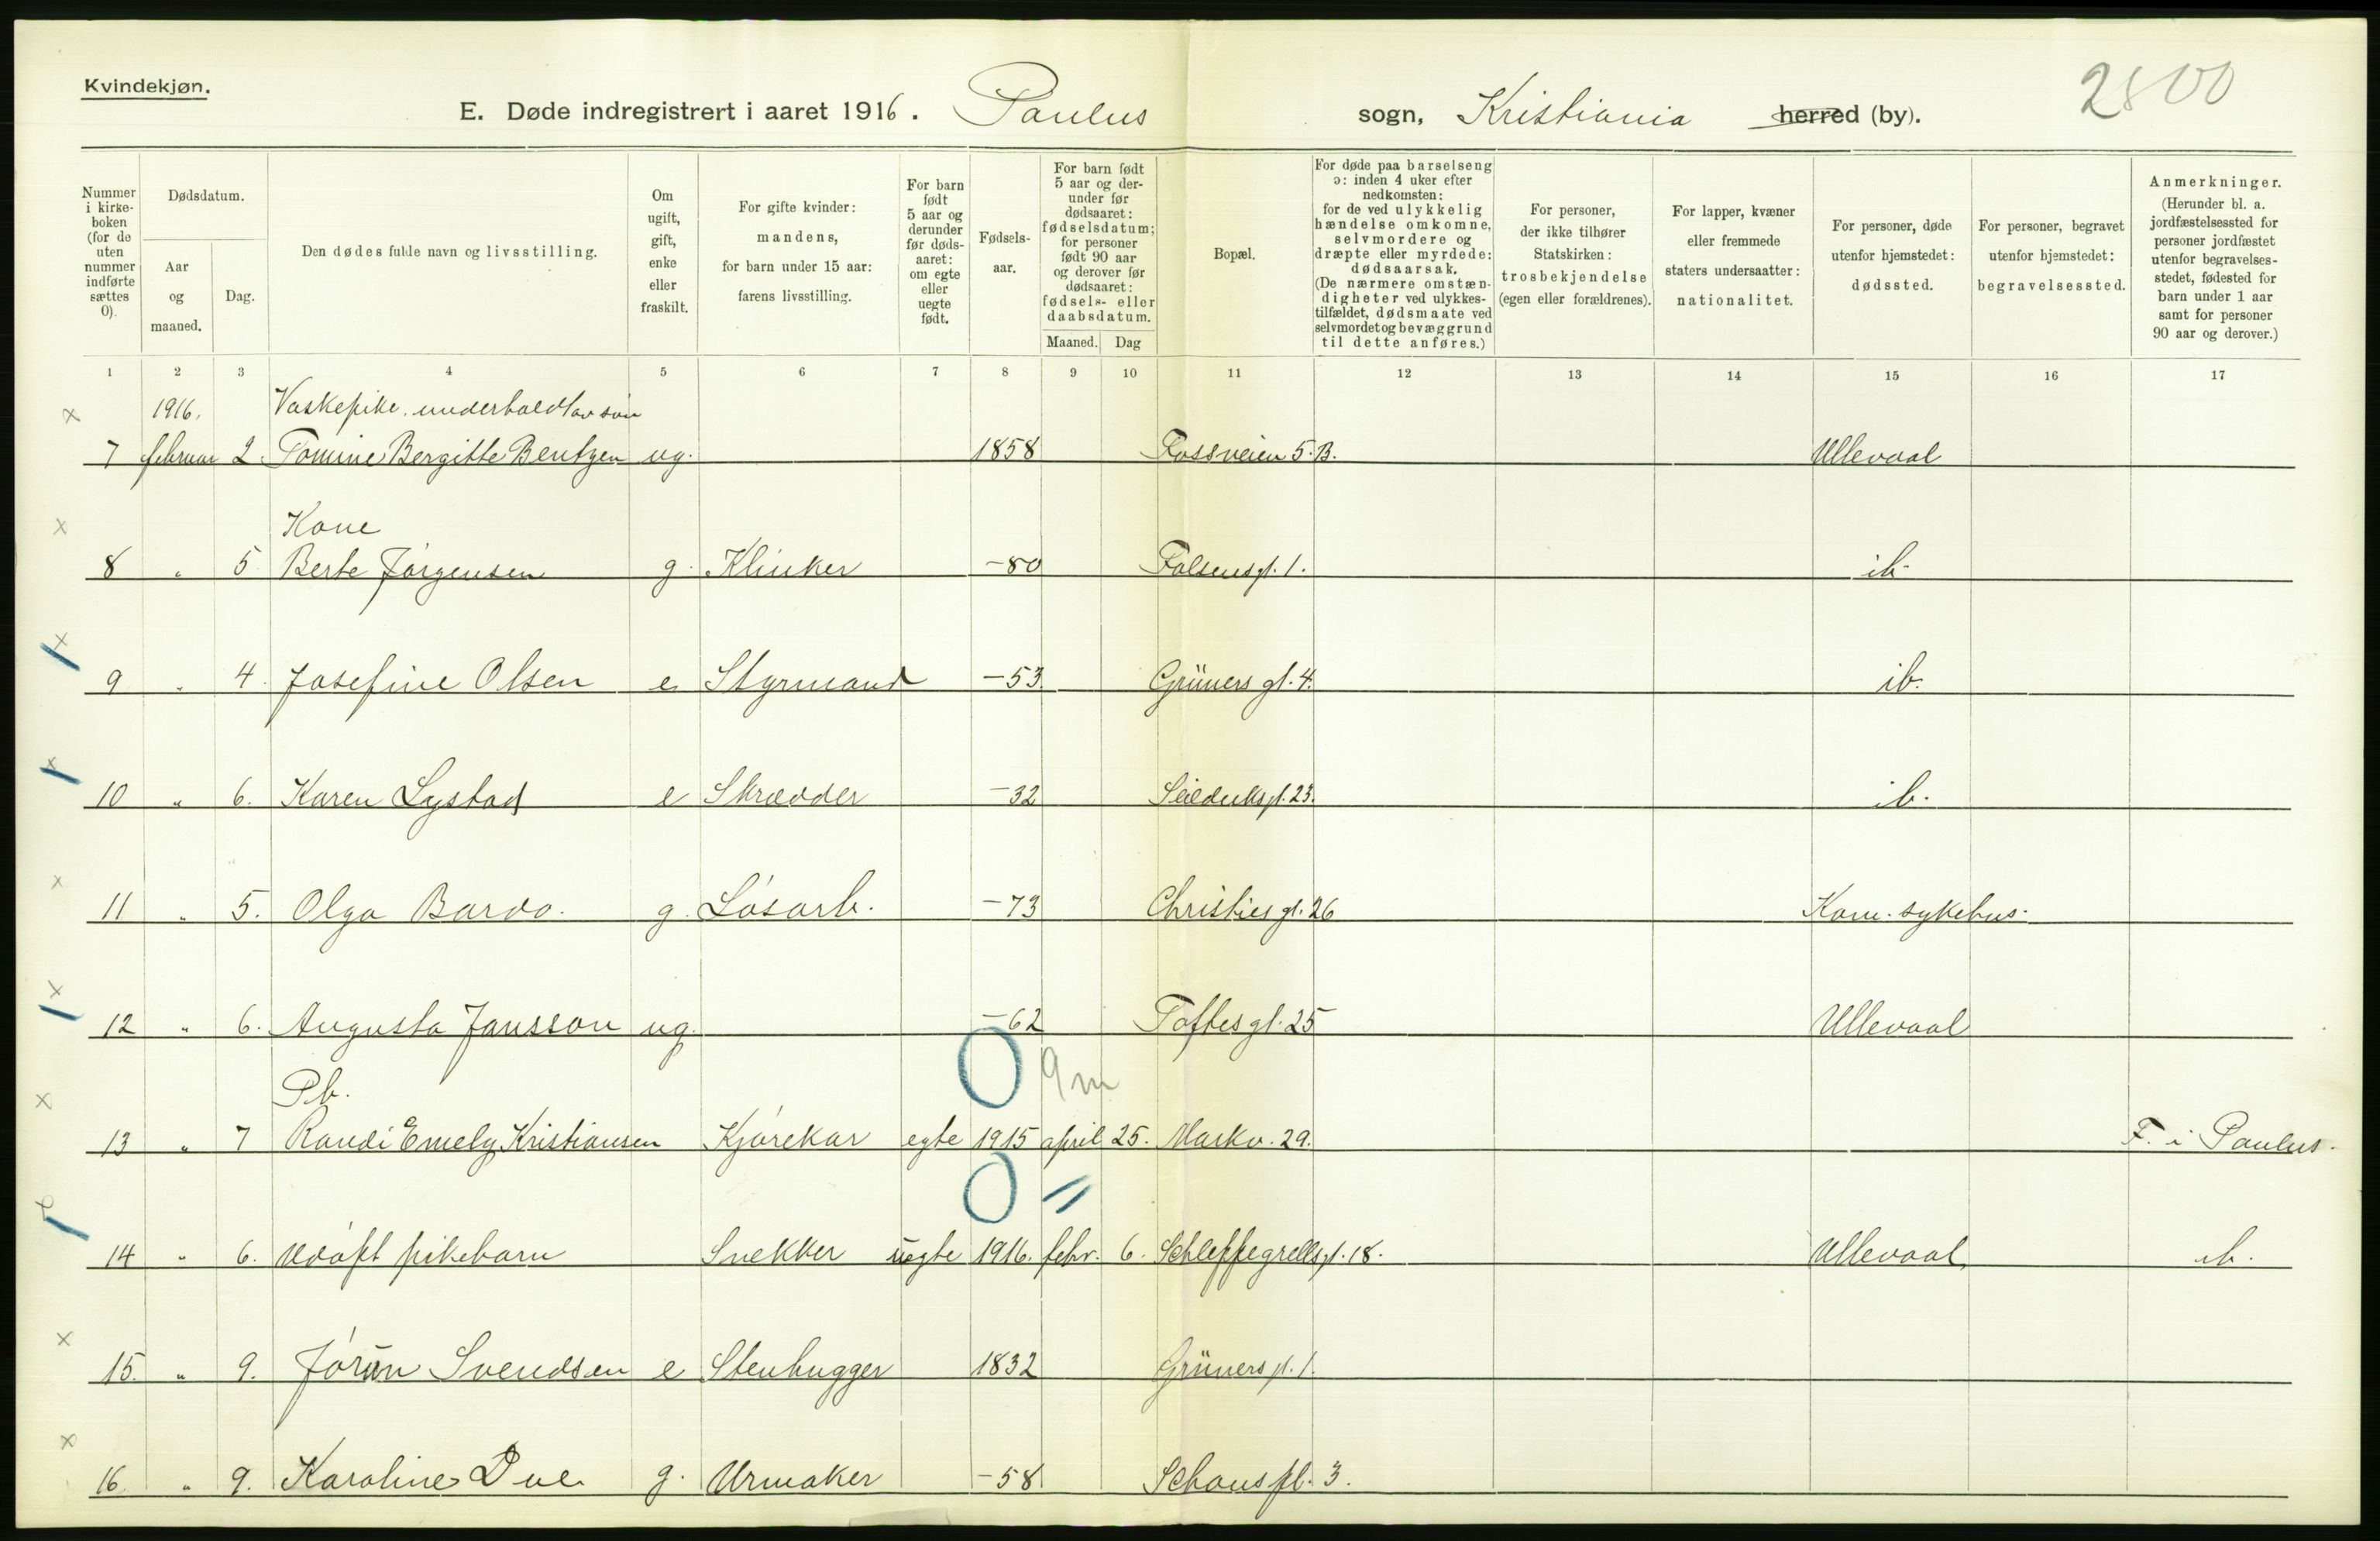 Kvindekjøn.
2800
E. Døde indregistrert i aaret 1916. Paulus sogn, Kristiania herred (by).
Nummer i kirke-boken (for de uten nummer indførte sættes 0).
Dødsdatum.
Aar og maaned.
Dag.
Den dødes fulde navn og livsstilling.
Om ugift, gift, enke eller fraskilt.
For gifte kvinder: mandens, for barn under 15 aar: farens livsstilling.
For barn født 5 aar og derunder før døds-aaret: om egte eller uegte født.
Fødsels-aar.
For barn født 5 aar og der-under før dødsaaret: fødselsdatum; for personer født 90 aar og derover før dødsaaret: fødsels- eller daabsdatum.
Maaned. Dag
Bopæl.
For døde paa barselseng ɔ: inden 4 uker efter nedkomsten: for de ved ulykkelig hændelse omkomne, selvmordere og dræpte eller myrdede: dødsaarsak. (De nærmere omstæn-digheter ved ulykkes-tilfældet, dødsmaate ved selvmordet og bevæggrund til dette anføres.)
For personer, der ikke tilhører Statskirken: trosbekjendelse (egen eller forældrenes).
For lapper, kvæner eller fremmede staters undersaatter: nationalitet.
For personer, døde utenfor hjemstedet: dødssted.
For personer, begravet utenfor hjemstedet: begravelsessted.
Anmerkninger. (Herunder bl. a. jordfæstelsessted for personer jordfæstet utenfor begravelses-stedet, fødested for barn under 1 aar samt for personer 90 aar og derover.)
1 2 3 4 5 6 7 8 9 10 11 12 13 14 15 16 17
x 1916. Vaskepike. underholdt av søn
7 februar 2 Tomine Bergitte Bentzen ug. 1858 Fossveien 5.B. Ullevaal
x Kone
8 " 5 Berte Jørgensen g. Klinker -80 Falsensgt. 1. ib.
x
9 " 4. Josefine Olsen e Styrmand -53. Grüners gt. 4. ib.
x
10 " 6. Karen Lystad e Skrædder -32 Seilduksgt. 23. ib.
x
11 " 5. Olga Bardo. g. Løsarb. -73 Christies gt. 26 Kom. sykehus.
x
12 " 6. Augusta Jansson ug. -62 Toftes gt. 25 Ullevaal
x Pb. 0 9 m
13 " 7 Randi Emely Kristiansen Kjørekar egte 1915 april 25. Markv. 29. F. i Paulus.
x 0 "
14 " 6. Udøpt pikebarn Snekker uegte 1916. febr. 6. Schleppegrellsgt. 18. Ullevaal ib.
x
15. " 9. Jørün Svendsen e Stenhugger 1832 Grüners pl. 1.
x
16. " 9. Karoline Due g. Urmaker -58 Schous pl. 3.